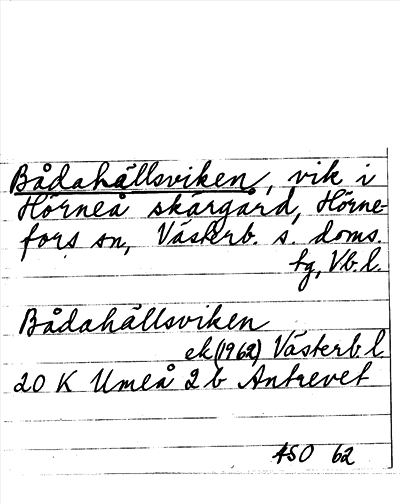 Bådahällsviken, vik i
Hörneå skärgård, Hörne-
fors sn, Västerb. s. doms.
tg, Vb.l.
Bådahällsviken
ek (1962) Västerb l
20 K Umeå 2 b Antrevet
ASO 62